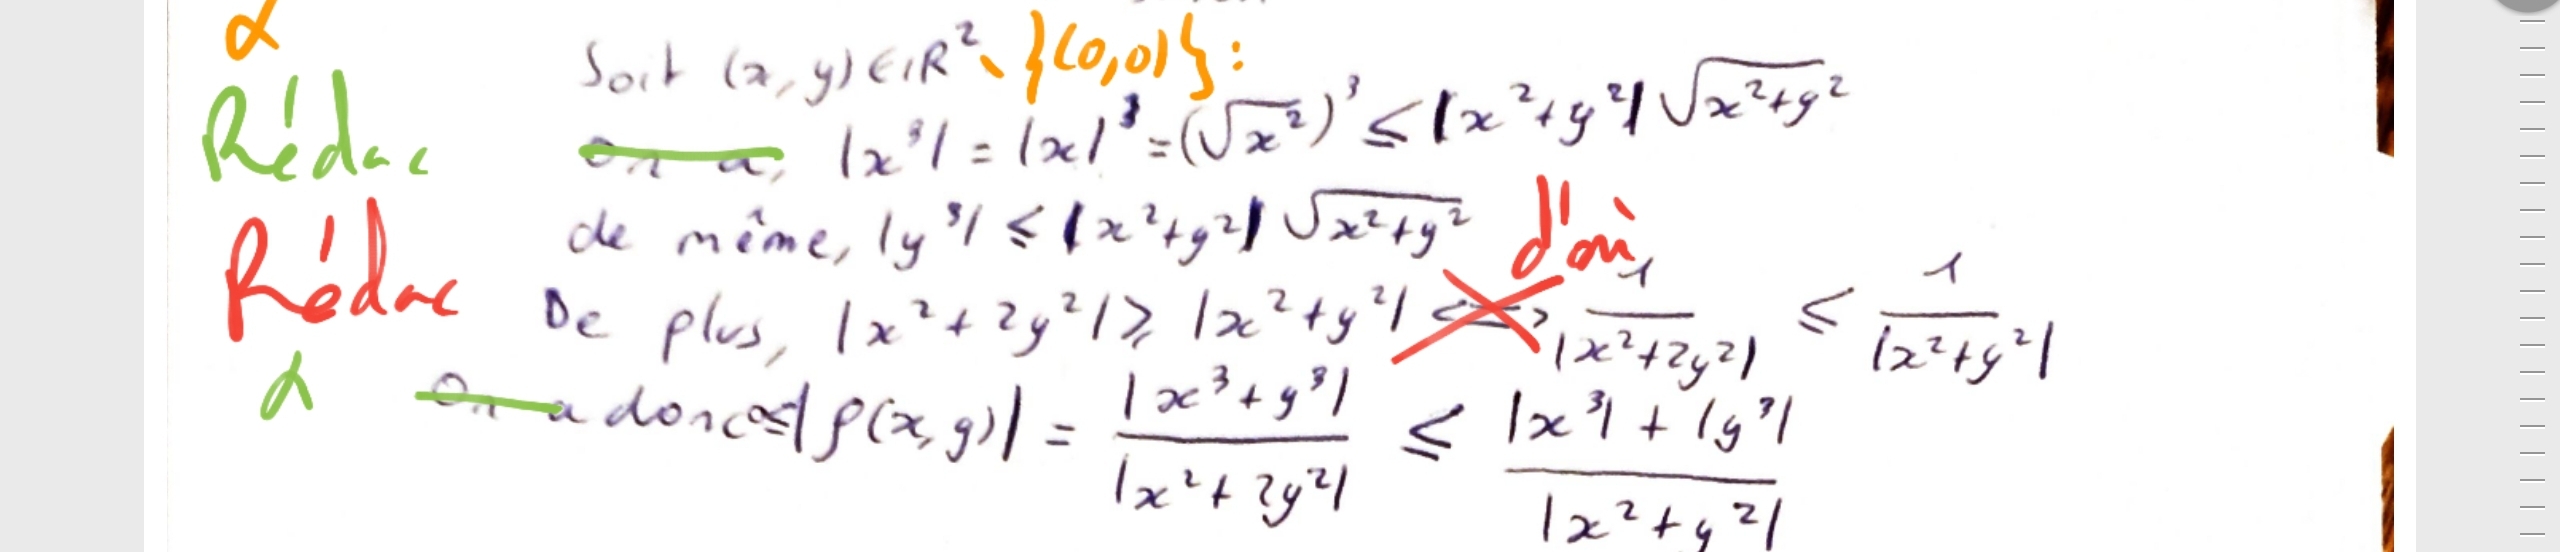 α
Soit (x, y) ∈ ℝ² \ {(0,0)} :
Rédac
On a, |x³| = |x|³ = (√x²)³ ≤ |x²+y²| √x²+y²
de même, |y³| ≤ |x²+y²| √x²+y²
d'où
Rédac
De plus, |x²+2y²| ≥ |x²+y²| <=> 1/|x²+2y²| ≤ 1/|x²+y²|
α
On a donc 0≤|f(x,y)| = |x³+y³|/|x²+2y²| ≤ |x³|+|y³|/|x²+y²|